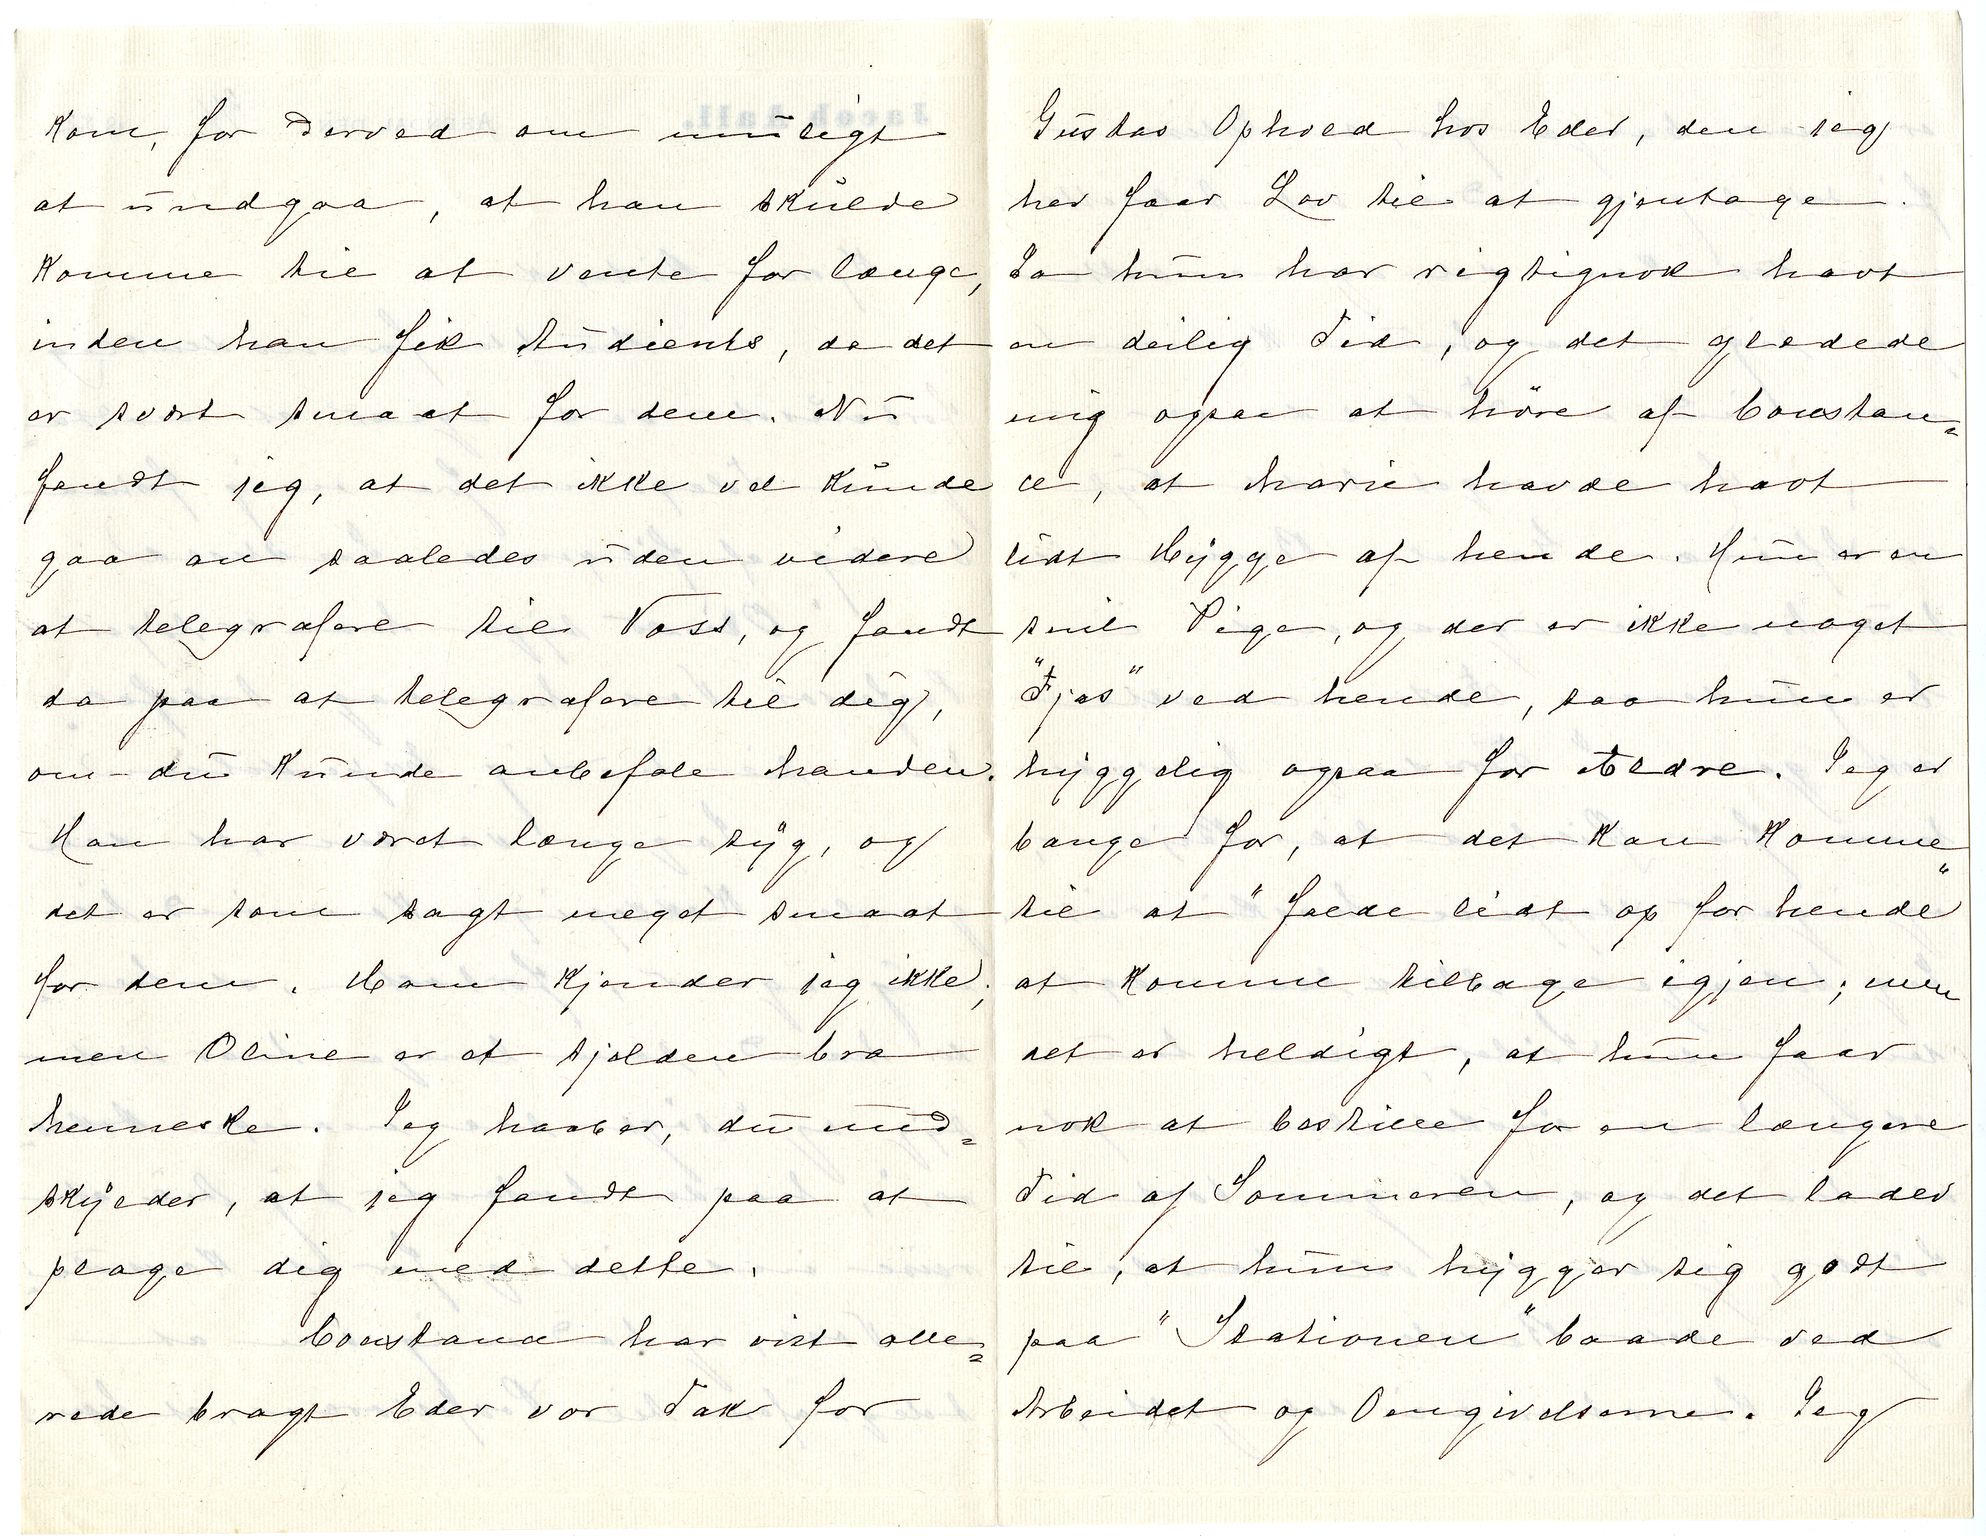 kom, for derved om muligt
at undgaa, at han skulde
komme til at vente for længe,
inden han fik Audients, da det
er svært smaat for dem. Nu
fandt jeg, at det ikke vel kunde
gaa an saaledes uden videre
at telegrafere til Voss, og fandt
da paa at telegrafere til dig,
om du kunde anbefale manden.
Han har været længe syg, og
det er som sagt meget smaat
for dem. Ham kjender jeg ikke;
men Oline er et sjelden bra
Menneske. Jeg haaber, du und=
skylder, at jeg fandt paa at
plage dig med dette.
Constance har vist alle=
rede bragt Eder vor Tak for
Gustas Ophold hos Eder, den jeg
her faar Lov til at gjentage.
Ja hun har rigtignok havt
en deilig Tid, og det glædede
mig ogsaa at høre af Constan=
ce, at Marie havde havt
lidt Hygge af hende. Hun er en
snil Pige, og der er ikke noget
"Fjas" ved hende, saa hun er
hyggelig ogsaa for Ældre. Jeg er
bange for, at det kan komme
til at "falde lidt op for hende"
at komme tilbage igjen; men
det er heldigt, at hun faar
nok at bestille for en længere
Tid af Sommeren, og det lader
til, at hun hygger sig godt
paa "Stationen" baade ved
Arbeidet og Omgivelserne. Jeg